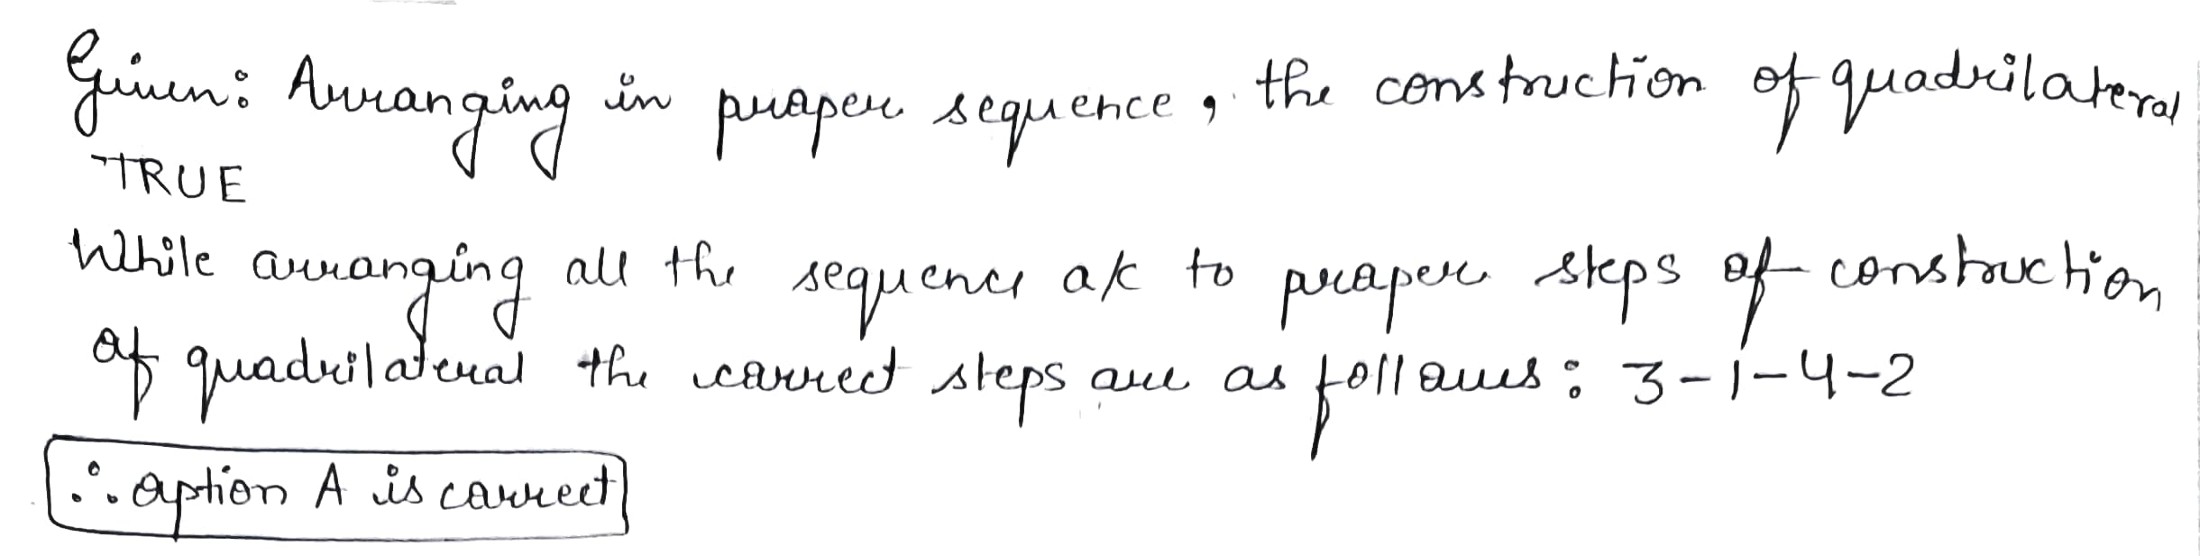 Given: Arranging in proper sequence, the construction of quadrilateral
TRUE
While arranging all the sequence a/c to proper steps of construction
of quadrilateral the correct steps are as follows: 3-1-4-2
∴ option A is correct